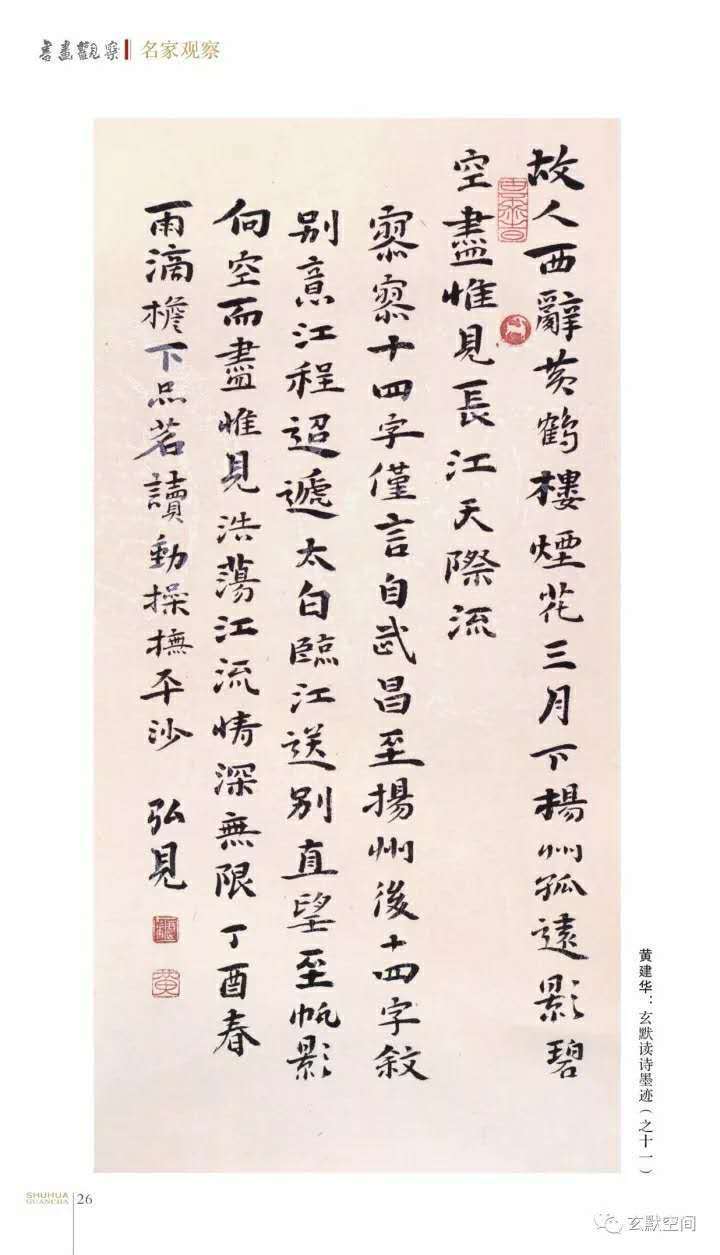 書畫觀察 名家观察
故人西辭黄鹤樓煙花三月下揚州孤遠影碧
空盡惟見長江天際流
寥寥十四字僅言自武昌至揚州後十四字敘
别意江程迢遞太白臨江送别直望至帆影
向空而盡惟見浩蕩江流情深無限丁酉春
雨滴檐下品茗讀動操撫平沙 弘見
黄
黄建华：玄默读诗墨迹（之十一）
SHUHUA
GUANCHA
26
玄默空间